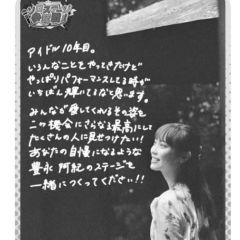 アイドル10年目。
いろんなことをやってきたけど
やっぱりパフォーマンスしてる時が
いちばん輝いてるなと思います。
みんなが愛してくれるその姿を
この機会にさらなる最高にして
たくさんの人に見せつけたい!
あなたの自慢になるような
豊永 阿紀のステージを
一緒につくってください!!